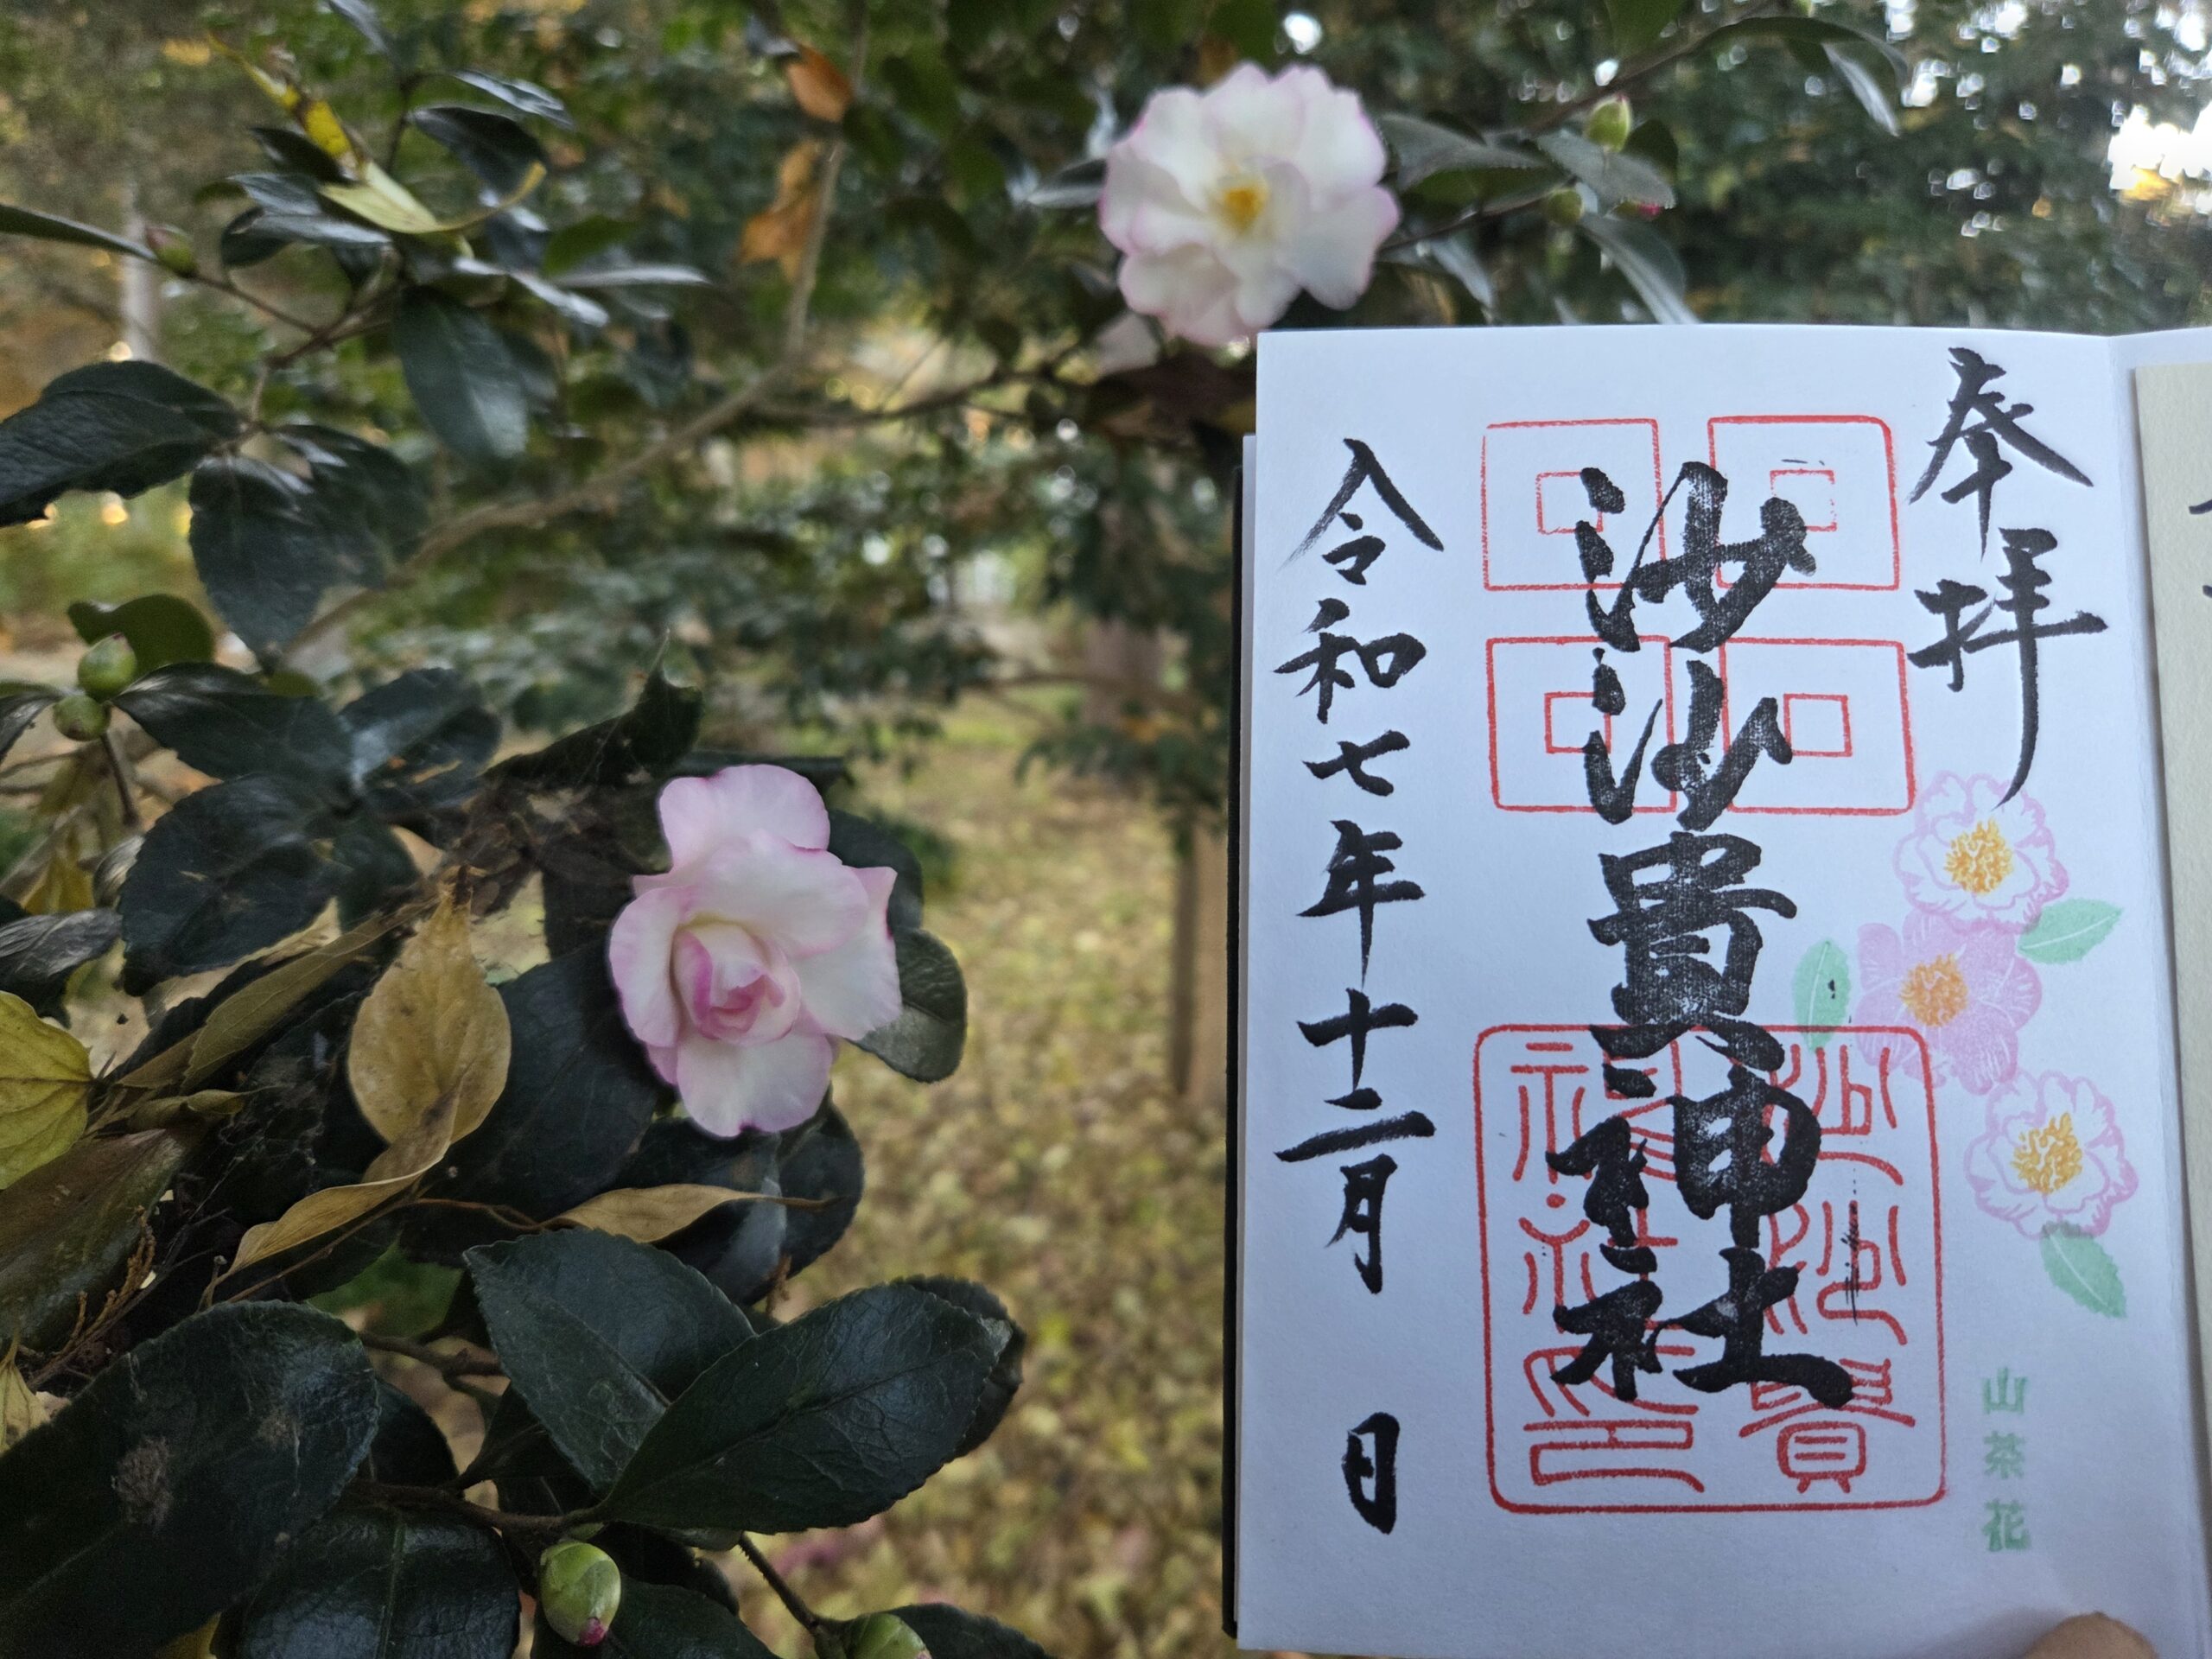 奉拝
沙沙貴神社
沙沙貴
神社印
山茶花
令和七年十二月 日